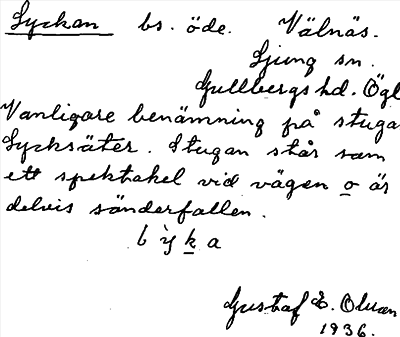 Lyckan bs. öde. Välnäs.
Ljung sn.
Gullbergs hd. Ögl
Vanligare benämning på stuga
Lycksäter. Stugan står som
ett spektakel vid vägen o är
delvis sönderfallen.
Gustaf E. Olsson
1936.